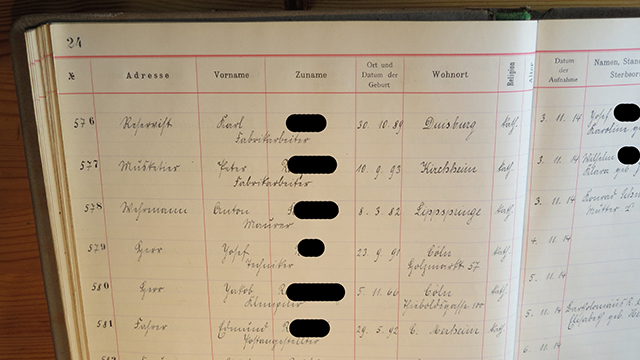 24
№ Adresse Vorname Zuname Ort und Datum der Geburt Wohnort Religion Alter Datum der Aufnahme Namen, Stan
Sterbeor
576 Reservist Karl 30. 10. 89 Duisburg kath. 3. 11. 14 Josef
Fabrikarbeiter Karoline
577 Musketier Peter 10. 9. 93 Kirchheim kath. 3. 11. 14 Wilhelm
Fabrikarbeiter Klara geb.
578 Wehrmann Anton 8. 3. 82 Lippspringe kath. 3. 11. 14 Konrad
Maurer Mutter
579 Herr Josef 23. 9. 91 Cöln kath. 4. 11. 14
Techniker Holzmarkt 57
580 Herr Jakob 5. 11. 66 Cöln kath. 5. 11. 14
Klempner Thieboldsgasse 100
581 Fahrer Edmund 29. 5. 92 C. Merheim kath. 5. 11. 14 Bartolomäus
Postangestellter Elisabeth geb.
6. 11. 14